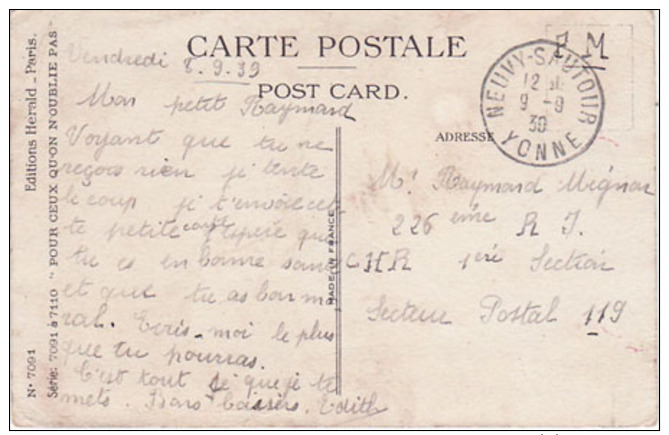 CARTE POSTALE
POST CARD.
Editions Herald - Paris.
N° 7091
Série: 7091 à 7110 "POUR CEUX QU'ON N'OUBLIE PAS"
MADE IN FRANCE
Vendredi 8.9.39
Mon petit Raymond
Voyant que tu ne
reçois rien je tente
le coup je t'envoie cet
te petite carte J'espère que
tu es en bonne santé
et que tu as bon mo
ral. Ecris-moi le plus
que tu pourras.
C'est tout ce que je te
mets. Bons baisers. Edith
F M
NEUVY-SAUTOUR
12
9 - 9
39
YONNE
ADRESSE
Mr Raymond
226 ème R I.
CHR 1ère Section
Secteur Postal 119